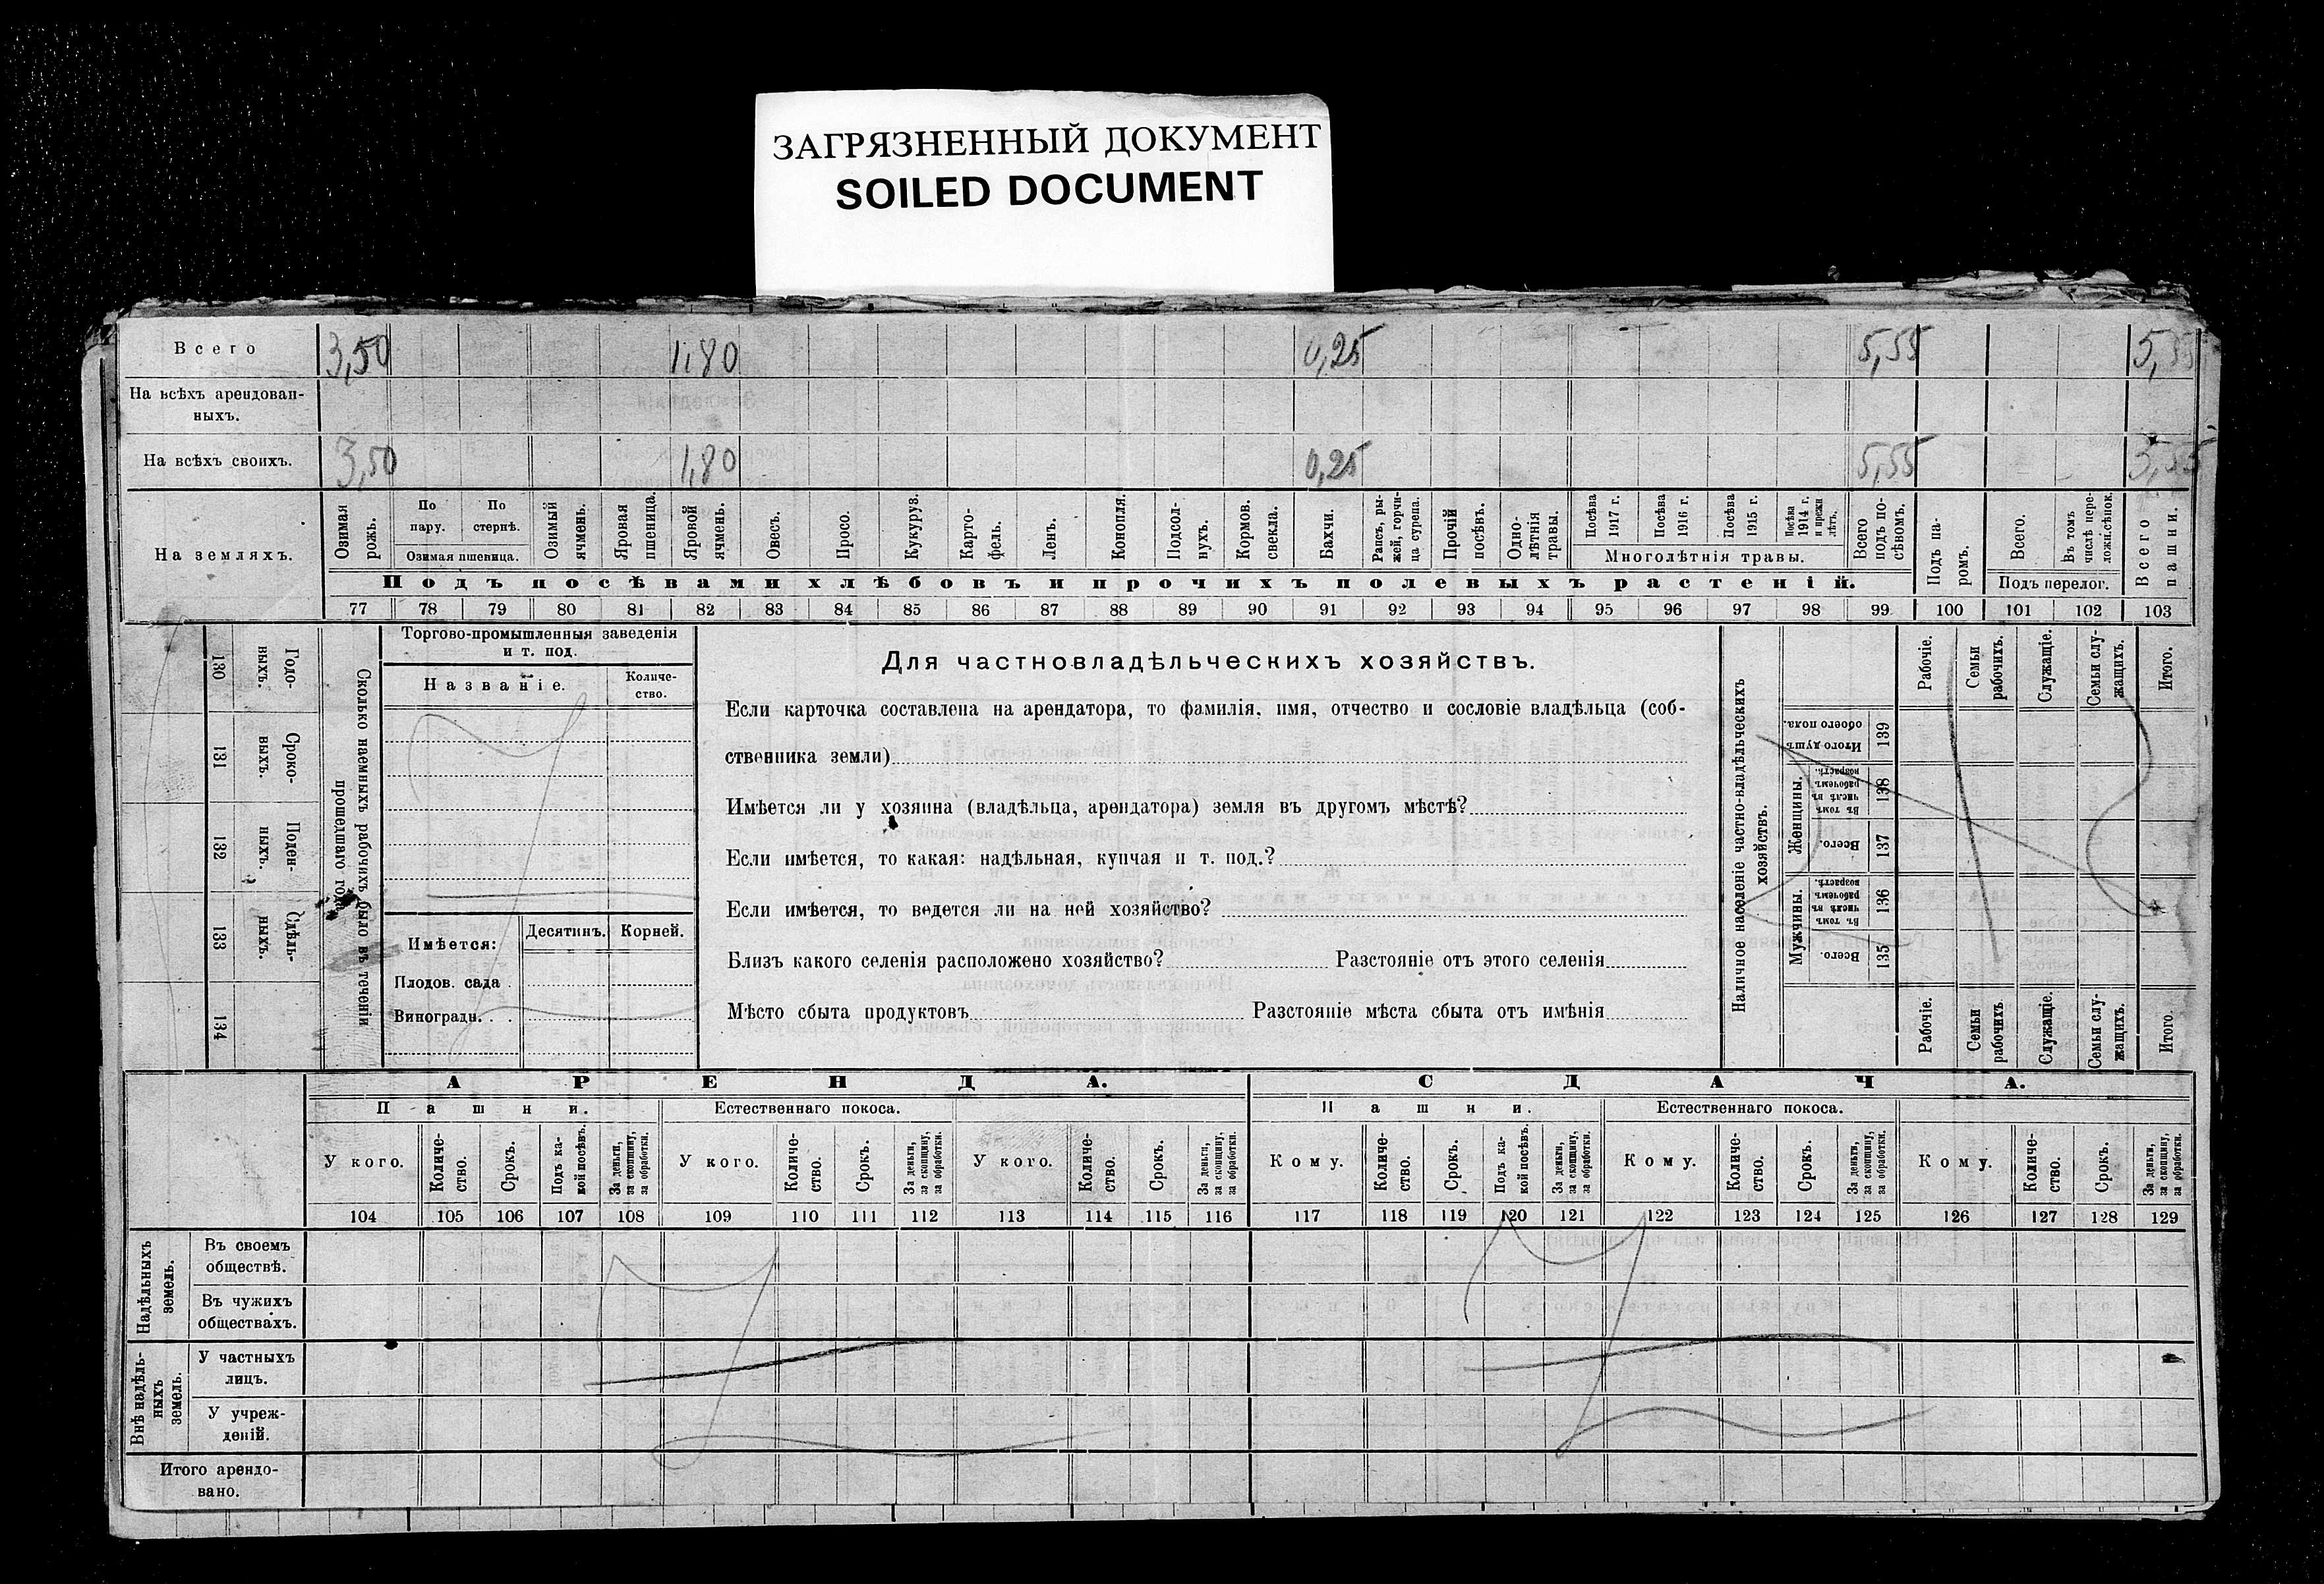 ЗАГРЯЗНЕННЫЙ ДОКУМЕНТ
SOILED DOCUMENT
Всего 3,50 1,80 0,25 5,55 5,55
На всѣхъ арендован-
ныхъ.
На всѣхъ своихъ. 3,50 1,80 0,25 5,55
На земляхъ.
Озимая рожь.
По пару.
По стернѣ.
Озимая пшеница.
Озимый ячмень.
Яровая пшеница.
Яровой ячмень.
Овесъ.
Просо.
Кукуруз.
Карто-
фель.
Ленъ.
Конопля.
Подсол-
нухъ.
Кормов. свекла.
Бахчи.
Рапсъ, ры-
жей, горчи-
ца сурепа.
Прочій посѣвъ.
Одно-
лѣтнія травы.
Посѣва 1917 г.
Посѣва 1916 г.
Посѣва 1915 г.
Посѣва 1914 г. и прежн лѣтъ.
Многолѣтнія травы.
Всего подъ по-
сѣвомъ.
Подъ па-
ромъ.
Всего.
Въ томъ числѣ пере-
ложн.сѣнок.
Подъ перелог.
Всего пашни.
Подъ посѣвами хлѣбовъ и прочихъ полевыхъ растеній.
77 78 79 80 81 82 83 84 85 86 87 88 89 90 91 92 93 94 95 96 97 98 99 100 101 102 103
130 Годо-
ныхъ.
131 Сроко-
выхъ.
132 Поден-
ныхъ.
133 Сдѣль-
ныхъ.
134
Сколько наемныхъ рабочихъ было въ теченіи
прошедшаго года
Торгово-промышленныя заведенія
и т. под.
Названіе.
Количе-
ство.
Имѣется:
Десятинъ.
Корней.
Плодов. сада .
Виноградн. . .
Для частновладѣльческихъ хозяйствъ.
Если карточка составлена на арендатора, то фамилія, имя, отчество и сословіе владѣльца (соб-
ственника земли)
Имѣется ли у хозяина (владѣльца, арендатора) земля въ другомъ мѣстѣ?
Если имѣется, то какая: надѣльная, купчая и т. под.?
Если имѣется, то ведется ли на ней хозяйство?
Близъ какого селенія расположено хозяйство? Разстояніе отъ этого селенія
Мѣсто сбыта продуктовъ Разстояніе мѣста сбыта отъ имѣнія
Наличное населеніе частно-владѣльческихъ
хозяйствъ.
Рабочіе.
Семьи рабочихъ.
Служащіе.
Семьи слу-
жащихъ.
Итого.
Итого душъ обоего пола.
139
Женщины.
Въ томъ числѣ въ рабочемъ возрастѣ.
138
Всего.
137
Мужчины.
Въ томъ числѣ въ рабочемъ возрастѣ.
136
Всего.
135
Рабочіе.
Семьи рабочихъ
Служащіе.
Семьи слу-
жащихъ.
Итого.
АРЕНДА. СДАЧА.
Пашни. Естественнаго покоса. Пашни. Естественнаго покоса.
У кого.
Количе-
ство.
Срокъ.
Подъ ка-
кой посѣвъ.
За деньги, за скопщину, за обработки.
У кого.
Количе-
ство.
Срокъ.
За деньги, за скопщину, за обработки.
У кого.
Количе-
ство.
Срокъ.
За деньги, за скопщину, за обработки.
Кому.
Количе-
ство.
Срокъ.
Подъ ка-
кой посѣвъ.
За деньги, за скопщину, за обработки.
Кому.
Количе-
ство.
Срокъ.
За деньги, за скопщину, за обработки.
Кому.
Количе-
ство.
Срокъ.
За деньги, за скопщину, за обработки.
104 105 106 107 108 109 110 111 112 113 114 115 116 117 118 119 120 121 122 123 124 125 126 127 128 129
Надѣльныхъ
земель.
Въ своемъ
обществѣ.
Въ чужихъ
обществахъ.
Внѣ надѣль-
ныхъ
земель.
У частныхъ
лицъ.
У учреж-
деній.
Итого арендо-
вано.